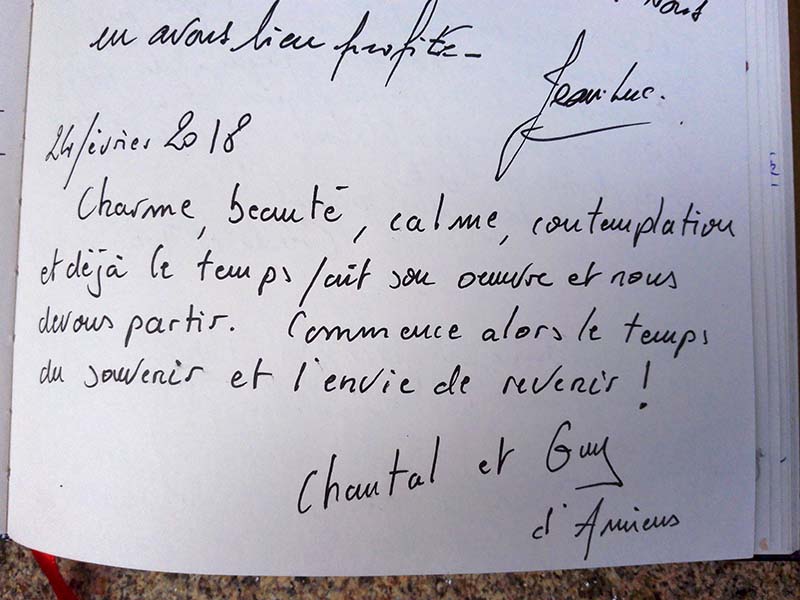 nous
en avons bien profité_
Jean-Luc.
24 février 2018
Charme, beauté, calme, contemplation
et déjà le temps fait son oeuvre et nous
devons partir. Commence alors le temps
du souvenir et l'envie de revenir !
Chantal et Guy
d'Amiens